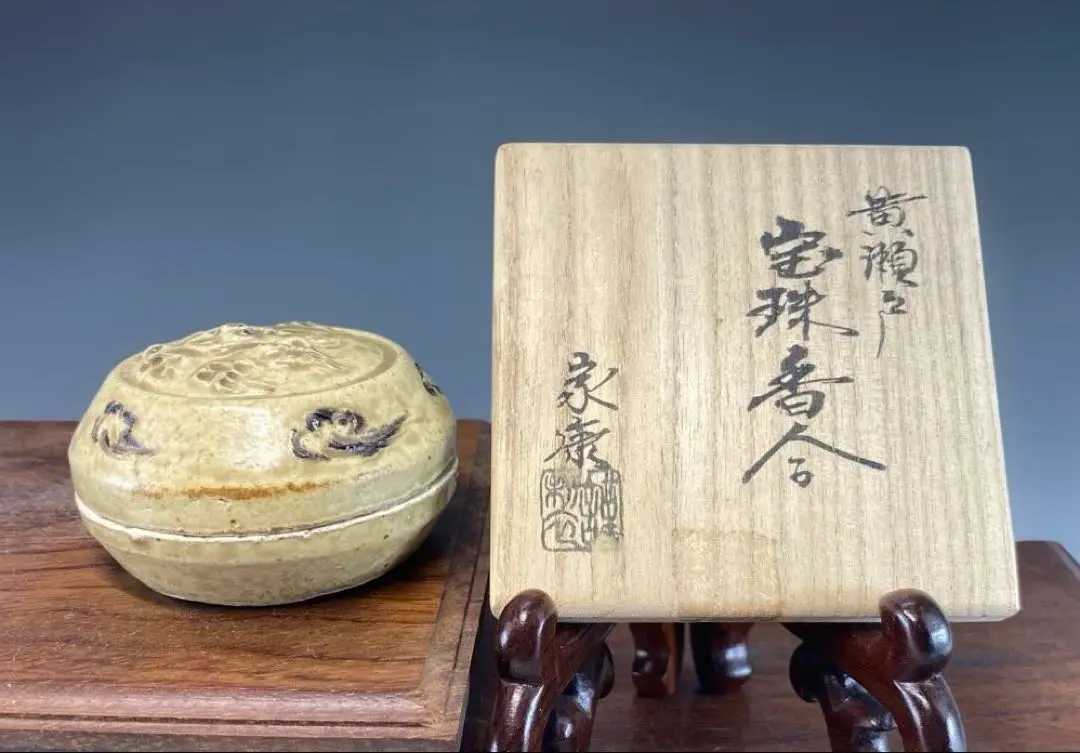 黄瀬戸
宝珠香合
家康